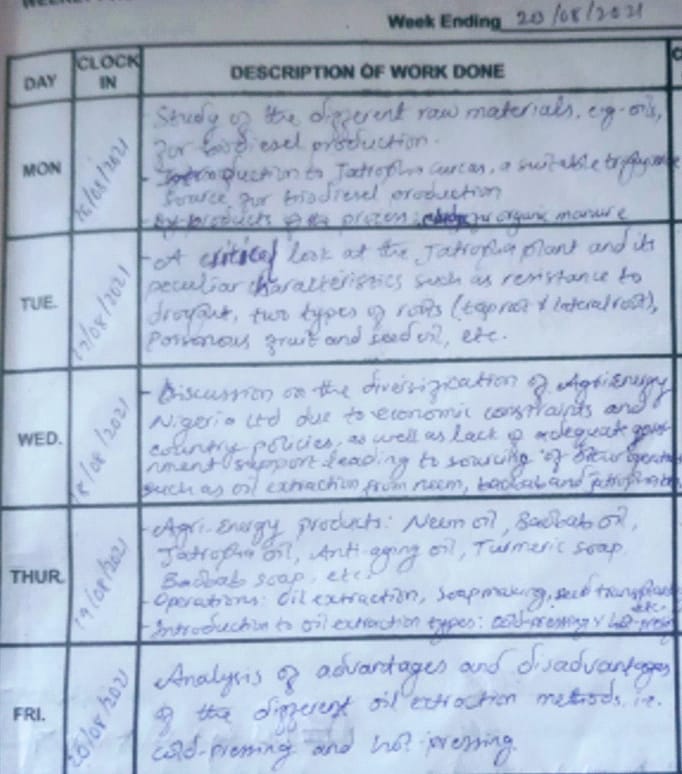 Week Ending 20/08/2021
DAY CLOCK IN DESCRIPTION OF WORK DONE
MON 16/08/2021
- Study of the different raw materials, e.g. oils,
for biodiesel production.
- Introduction to Jatropha curcas, a suitable triglyceride
source for biodiesel production
- By-products of the process: for organic manure
TUE. 17/08/2021
- A critical look at the Jatropha plant and its
peculiar characteristics such as resistance to
drought, two types of roots (tap root & lateral root),
Poisonous fruit and seed oil, etc.
WED. 18/08/2021
- Discussion on the diversification of AgriEnergy
Nigeria Ltd due to economic constraints and
country policies, as well as lack of adequate gover
nment support leading to sourcing of other
such as oil extraction from neem, baobab and jatropha
THUR. 19/08/2021
- Agri-Energy products: Neem oil, Baobab oil,
Jatropha oil, Anti-aging oil, Turmeric soap,
Baobab soap, etc.
- Operations: Oil extraction, soapmaking, seed etc.
- Introduction to oil extraction types: cold-pressing & hot-pressing
FRI. 20/08/2021
Analysis of advantages and disadvantages
of the different oil extraction methods, i.e.
cold-pressing and hot pressing.